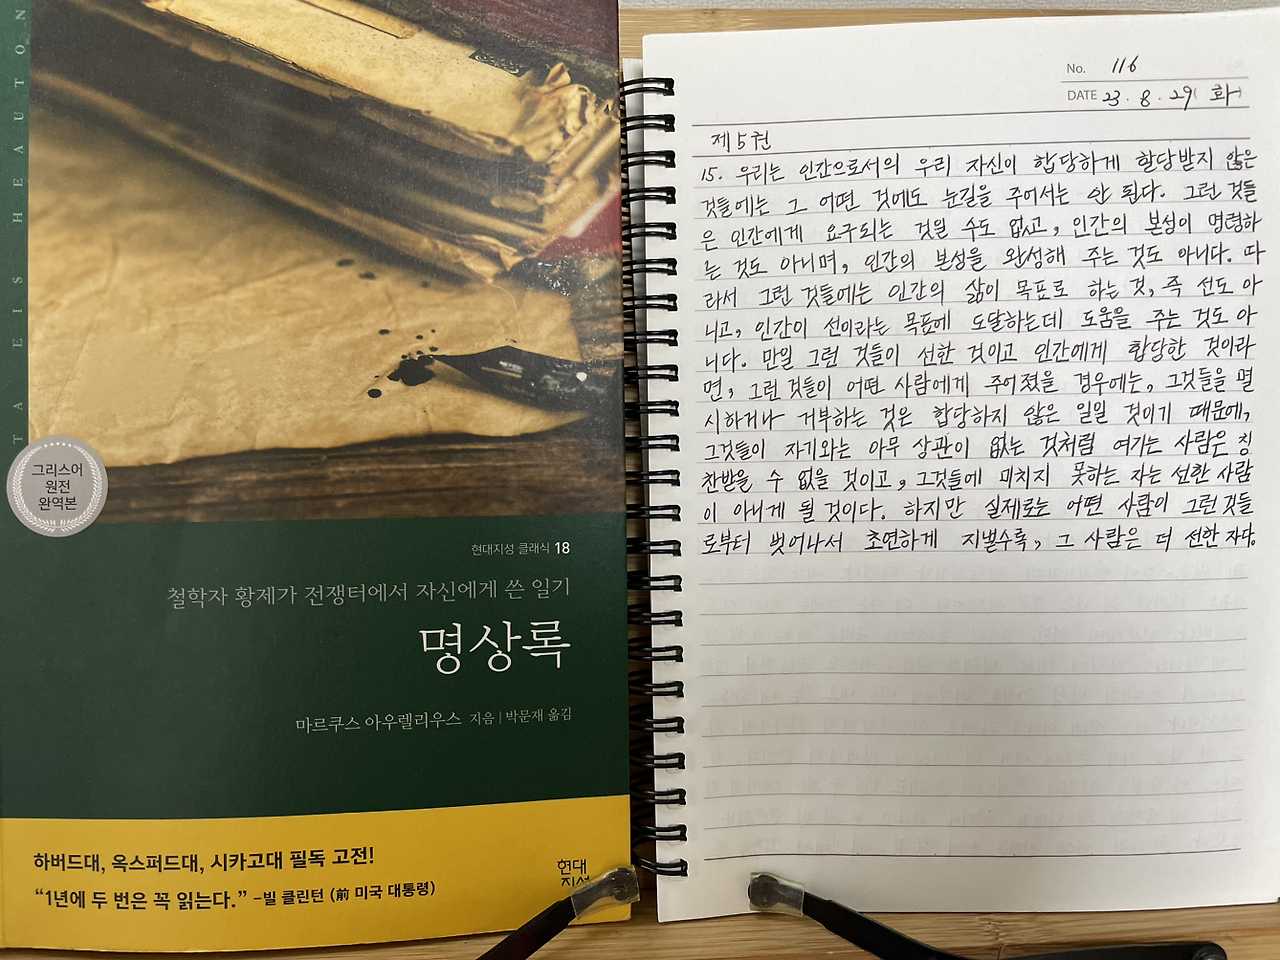 TA EIS HEAUTON
그리스어
원전
완역본
현대지성 클래식 18
철학자 황제가 전쟁터에서 자신에게 쓴 일기
명상록
마르쿠스 아우렐리우스 지음 | 박문재 옮김
하버드대, 옥스퍼드대, 시카고대 필독 고전!
“1년에 두 번은 꼭 읽는다.” –빌 클린턴 (前 미국 대통령)
현대
지성
No. 116
DATE 23. 8. 29(화)
제5권
15. 우리는 인간으로서의 우리 자신이 합당하게 할당받지 않은
것들에는 그 어떤 것에도 눈길을 주어서는 안 된다. 그런 것들
은 인간에게 요구되는 것일 수도 없고, 인간의 본성이 명령하
는 것도 아니며, 인간의 본성을 완성해 주는 것도 아니다. 따
라서 그런 것들에는 인간의 삶이 목표로 하는 것, 즉 선도 아
니고, 인간이 선이라는 목표에 도달하는데 도움을 주는 것도 아
니다. 만일 그런 것들이 선한 것이고 인간에게 합당한 것이라
면, 그런 것들이 어떤 사람에게 주어졌을 경우에는, 그것들을 멸
시하거나 거부하는 것은 합당하지 않은 일일 것이기 때문에,
그것들이 자기와는 아무 상관이 없는 것처럼 여기는 사람은 칭
찬받을 수 없을 것이고, 그것들에 미치지 못하는 자는 선한 사람
이 아니게 될 것이다. 하지만 실제로는 어떤 사람이 그런 것들
로부터 벗어나서 초연하게 지낼수록, 그 사람은 더 선한 자다.